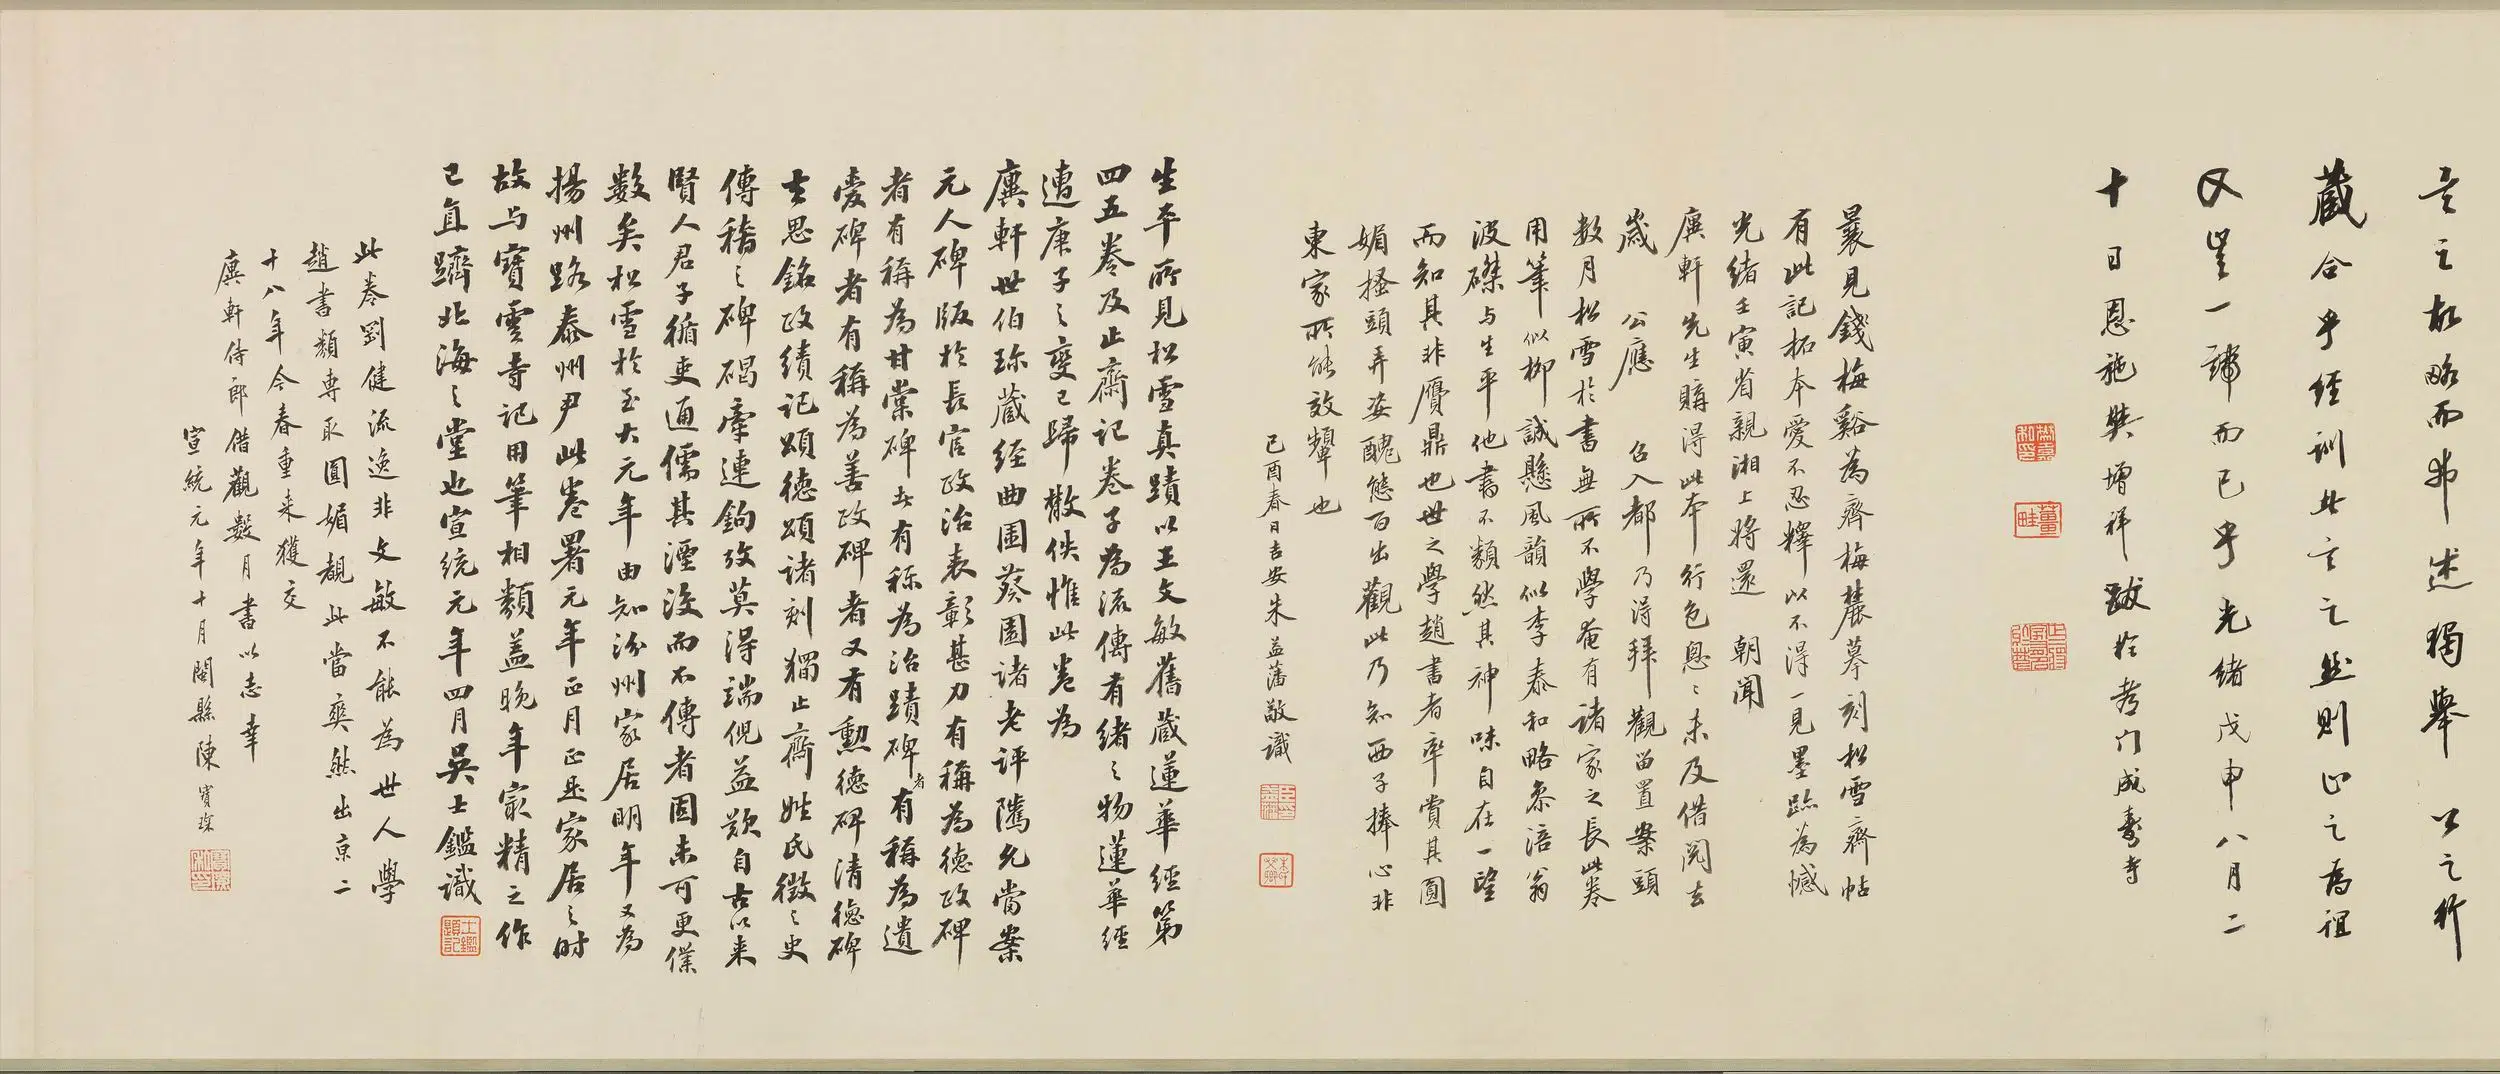 言之故略而弗述獨舉 公之行
藏合乎經訓先言之然則此之為祖
又豈一端而已乎光緒戊申八月二
十日恩施樊增祥跋於青門咸壽寺
曩見錢梅谿為齊梅麓摹刻松雪齋帖
有此記拓本愛不忍釋以不得一見墨跡為憾
光緒壬寅省親湘上將還 朝聞
賡軒先生購得此本行色怱〻未及借閱去
歲 公應 召入都乃得拜觀留置案頭
數月松雪於書無所不學奄有諸家之長此卷
用筆似柳誠懸風韻似李泰和略參涪翁
波磔与生平他書不類然其神味自在一望
而知其非贋鼎也世之學趙書者率賞其圓
媚搔頭弄姿醜態百出觀此乃知西子捧心非
東家所能效顰也
己酉春日吉安朱益藩敬識
生平所見松雪真蹟以王文敏舊藏蓮華經第
四五卷及止齋記卷子為流傳有緒之物蓮華經
遭庚子之變已歸散佚惟此卷為
賡軒世伯珎藏經曲園葵園諸老評騭允當案
元人碑版於長官政治表彰甚力有稱為德政碑
者有稱為甘棠碑者有称為治蹟碑者有稱為遺
愛碑者有稱為善政碑者又有勲德碑清德碑
去思銘政績記頌德頌諸刻獨止齋姓氏徵之史
傳稽之碑碣牽連鉤攷莫得端倪益歎自古以来
賢人君子循吏通儒其湮沒而不傳者固未可更僕
數矣松雪於至大元年由知汾州家居明年又為
揚州路泰州尹此卷署元年正月正是家居之時
故与寶雲寺記用筆相類蓋晚年最精之作
已直躋北海之堂也宣統元年四月吳士鑑識
此卷劉健流逸非文敏不能為世人學
趙書類専取圓媚觀此當爽然出京二
十八年今春重来獲交
賡軒侍郎借觀數月書以志幸
宣統元年十月閩縣陳寶琛